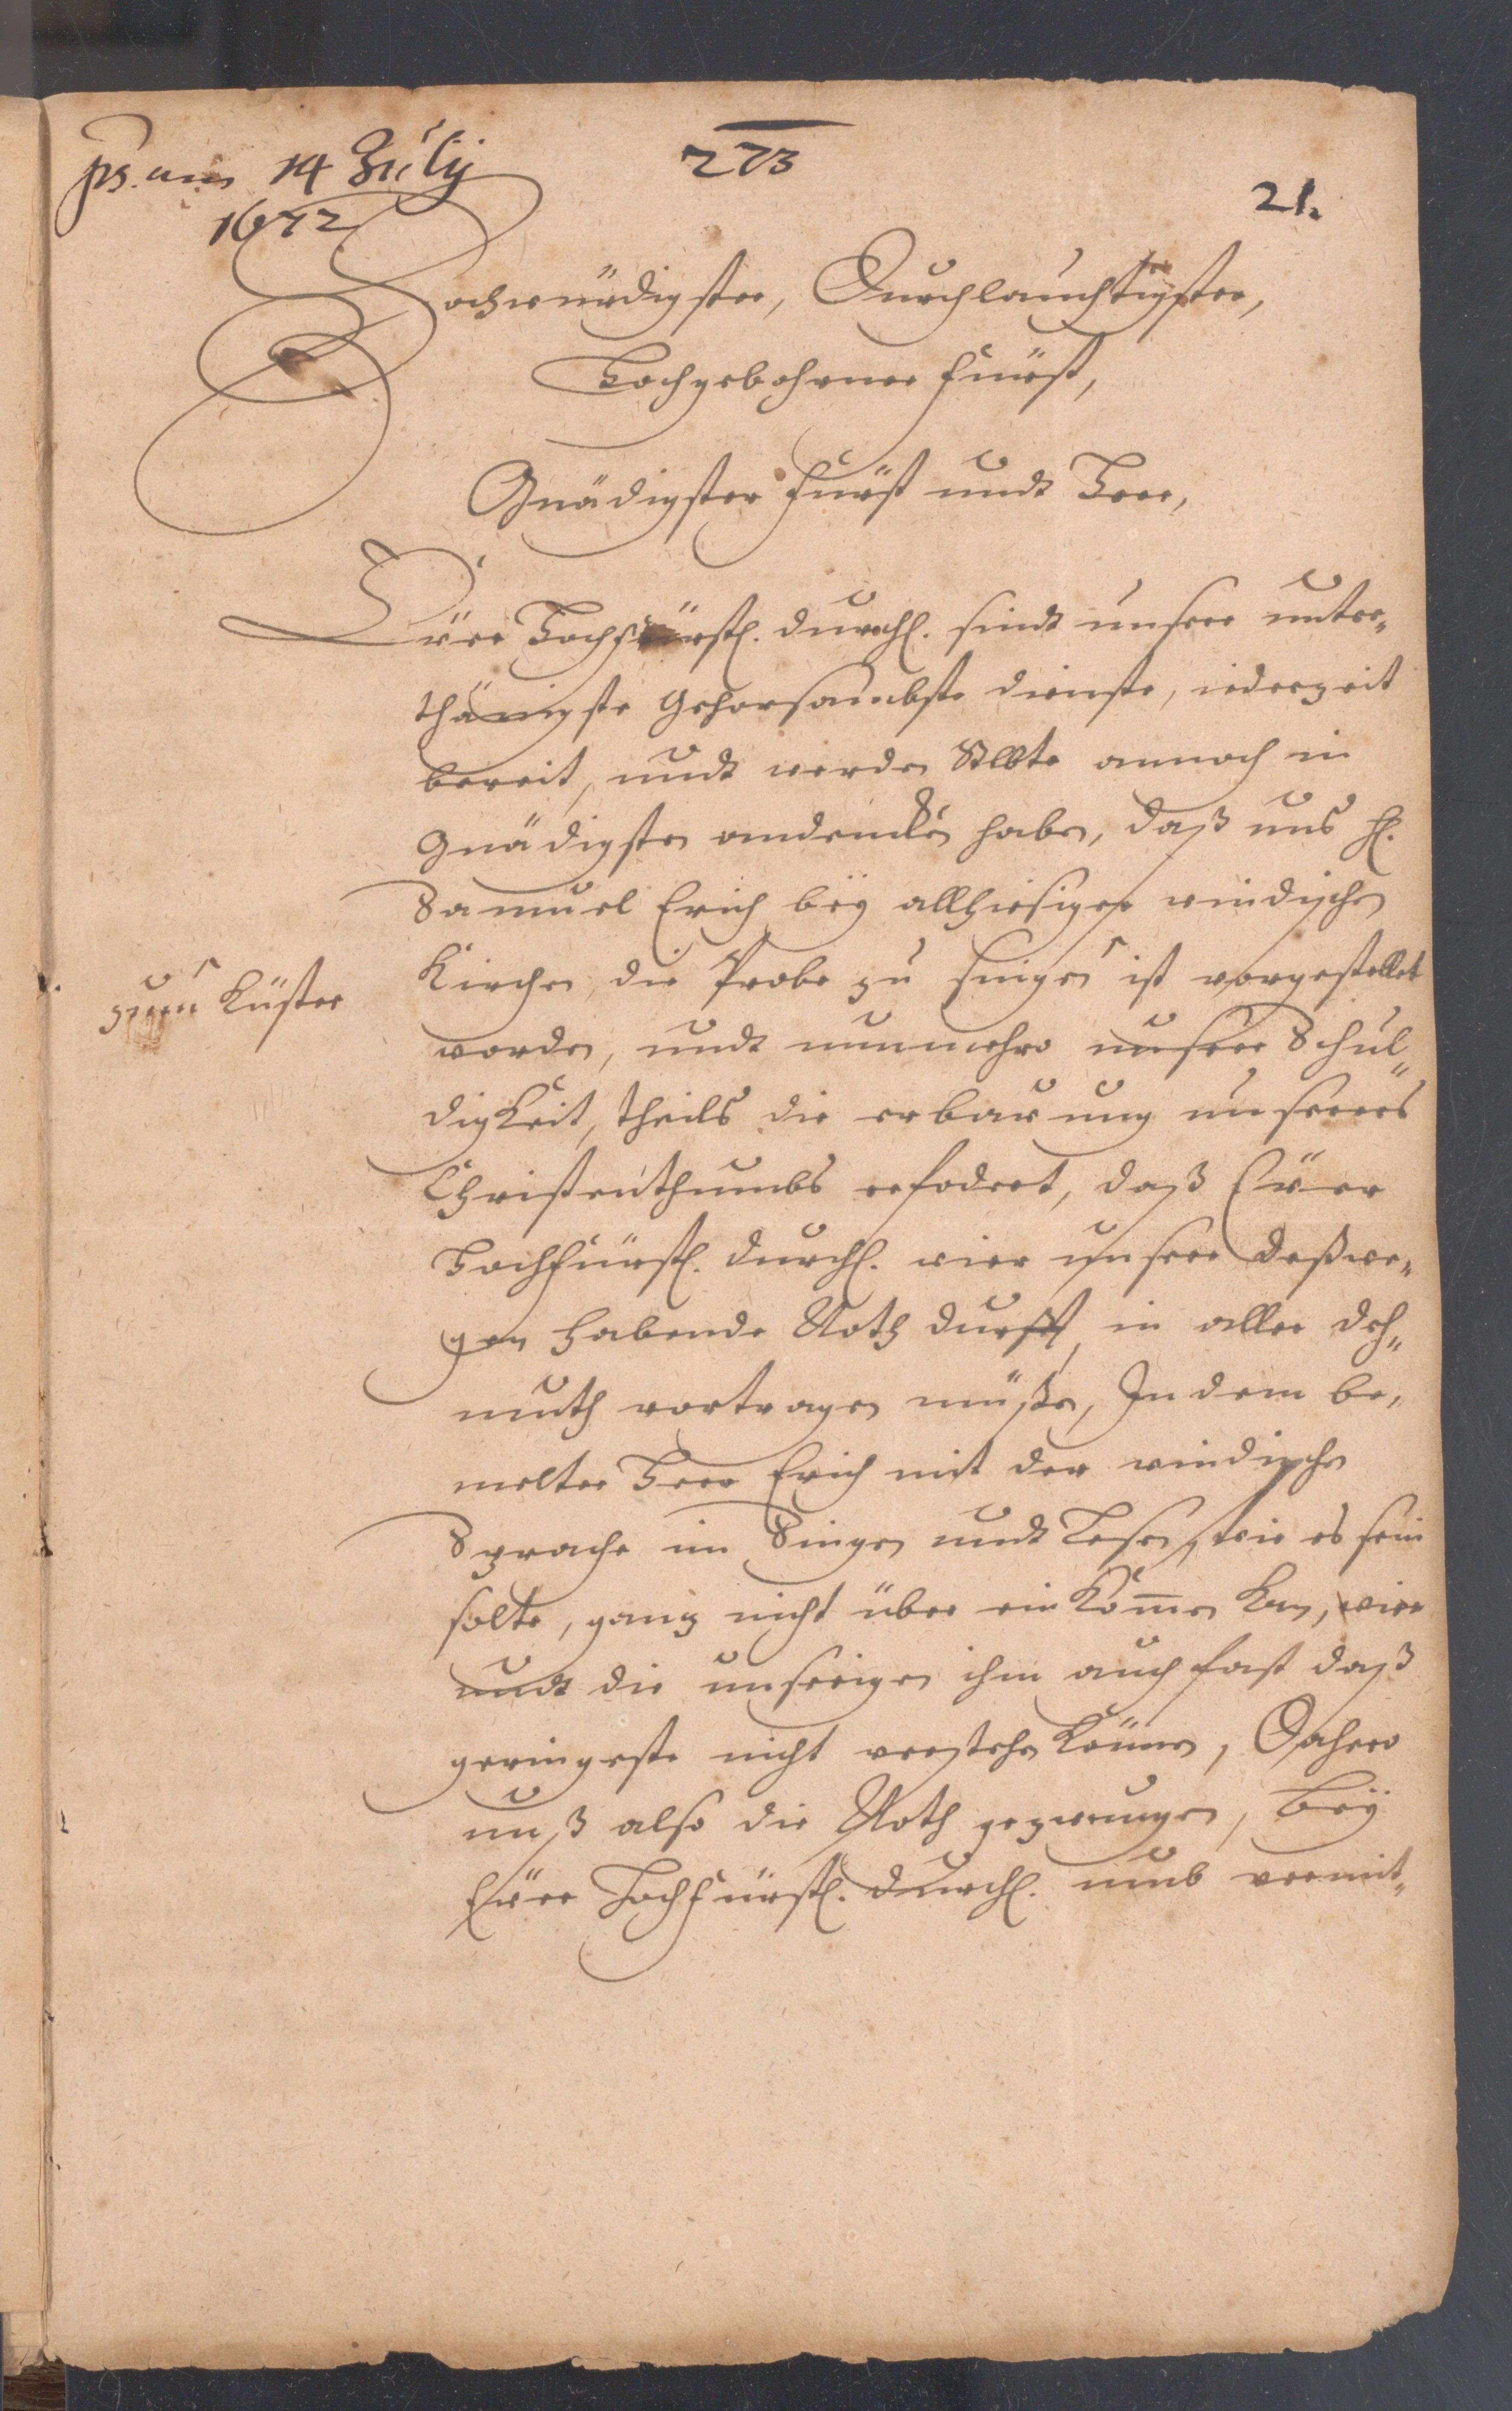 ps. am 14 Julij
1672
273
21.
Hochwürdigster, Durchlauchtigster,
Hochgebohrner Fürst,
Gnädigster Fürst undt Herr,
Eürer Hochfürstl. durchl. sindt unsere unter„
thänigste Gehorsambste dienste, iederzeit
bereit, undt werden Selbte annoch in
Gnädigsten andencken haben, daß uns H.
Samuel Erich beÿ allhiesiger windischen
zum Küster
Kirchen, die Probe zu singen ist vorgestellet
worden, undt nunmehro unsere Schul„
digkeit, theils die erbauung unseres
Christenthumbs erfodert, daß Eürer
Hochfürstl. durchl. wier unsere deßwe„
gen habende Noth durfft, in aller deh„
muth vortragen müßen, In dem be„
melter Herr Erich mit der windischen
Sprache im Singen undt Lesen, wie es sein
solte, gantz nicht über ein kom̄en kan, wier
undt die unserigen ihm auch fast daß
geringeste nicht verstehen können, Dahero
unß also die Noth gezwungen, beÿ
Eürer Hochfürstl. durchl. umb vermit„